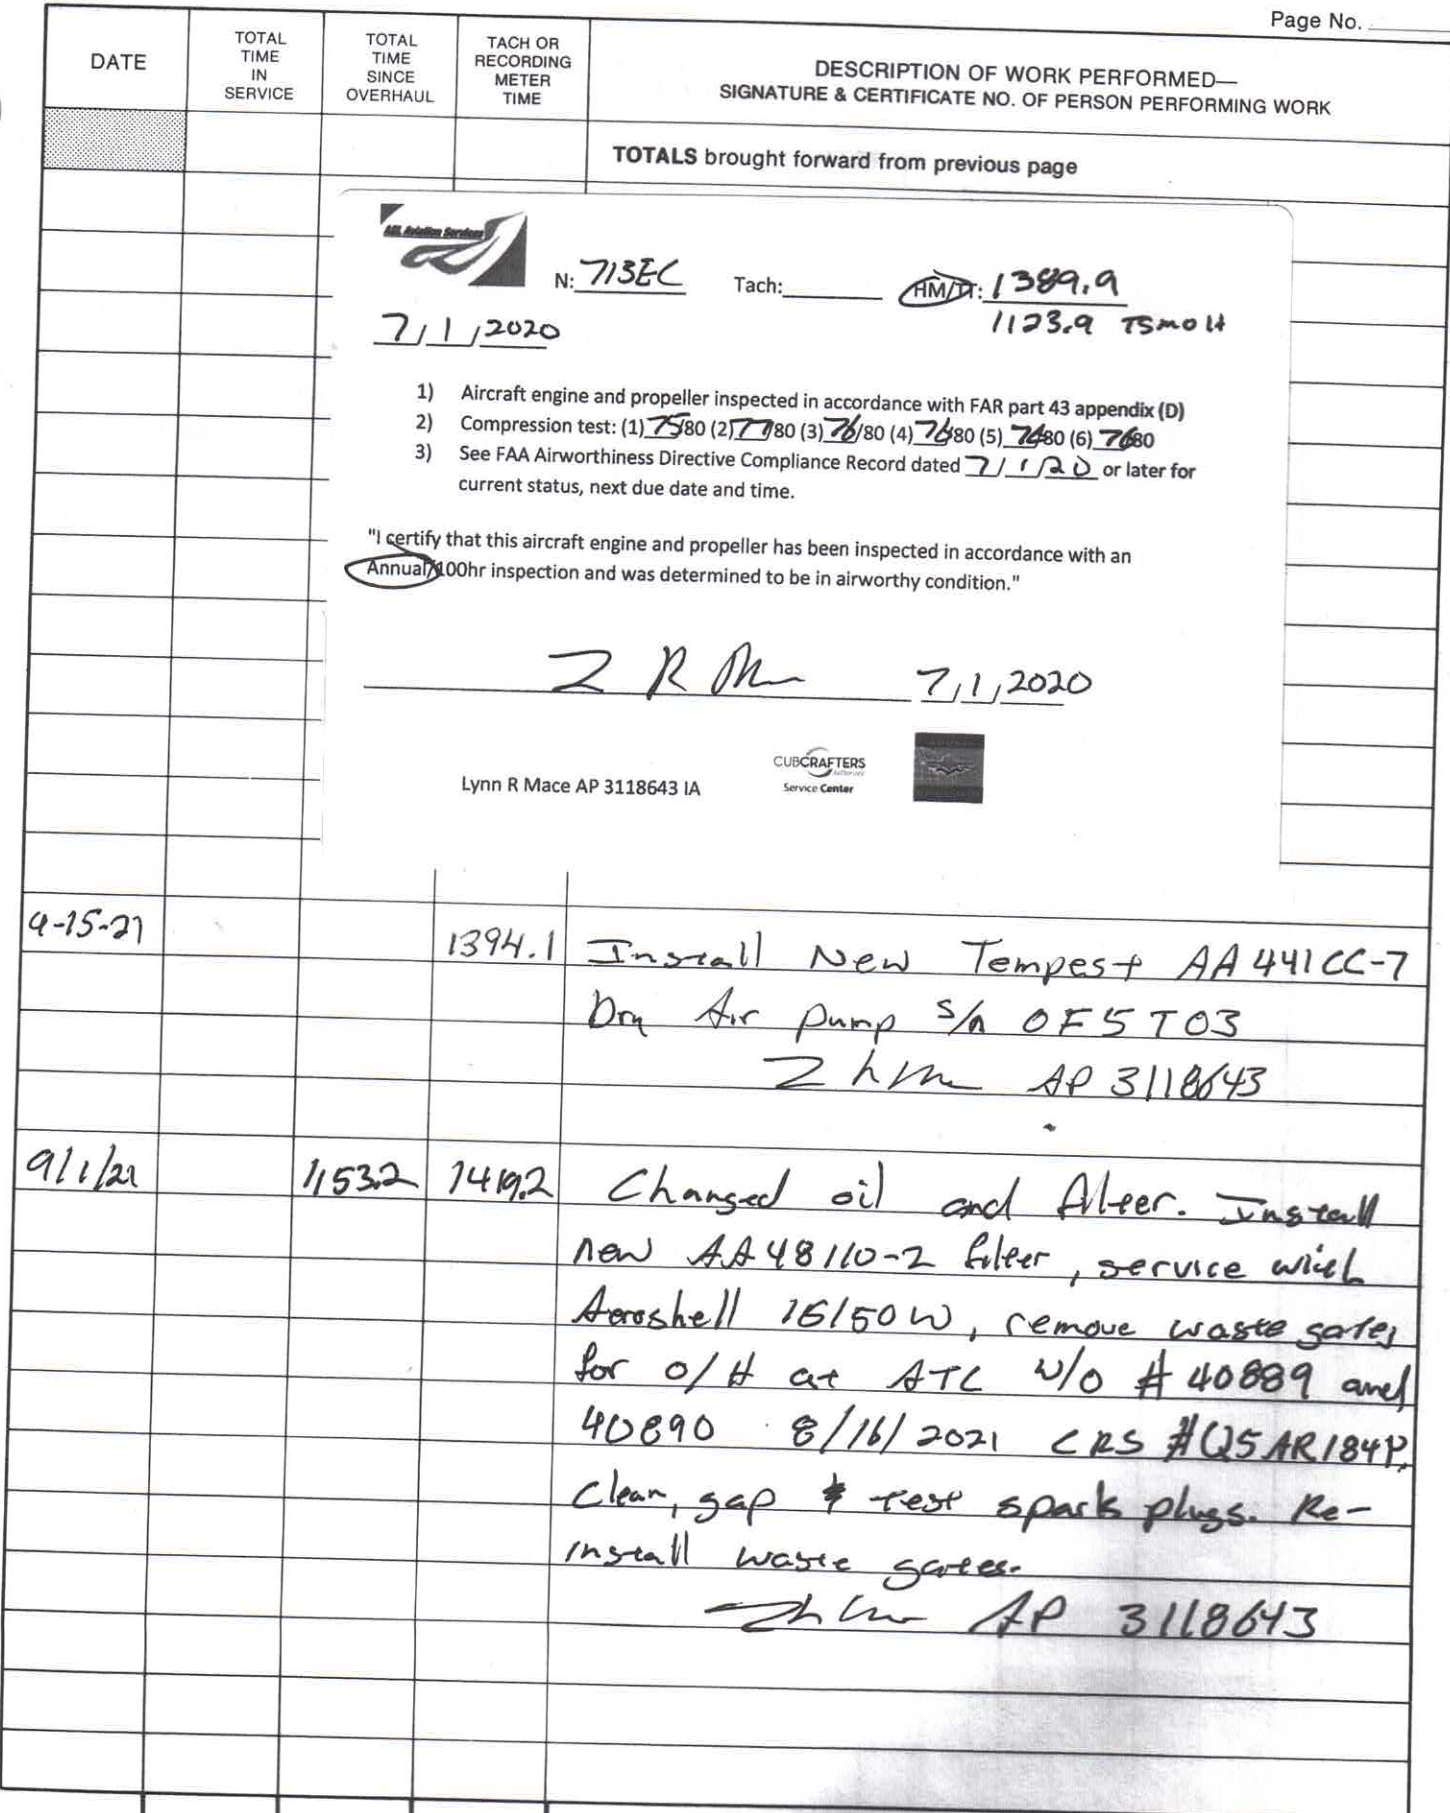 Page No.
DATE
TOTAL TIME IN SERVICE
TOTAL TIME SINCE OVERHAUL
TACH OR RECORDING METER TIME
DESCRIPTION OF WORK PERFORMED—
SIGNATURE & CERTIFICATE NO. OF PERSON PERFORMING WORK
TOTALS brought forward from previous page
AGL Aviation Services
N: 713EC Tach: HM/TT: 1389.9
1123.9 TSMOH
7/1/2020
1) Aircraft engine and propeller inspected in accordance with FAR part 43 appendix (D)
2) Compression test: (1) 75/80 (2) 77/80 (3) 76/80 (4) 76/80 (5) 74/80 (6) 76/80
3) See FAA Airworthiness Directive Compliance Record dated 7/1/20 or later for
current status, next due date and time.
"I certify that this aircraft engine and propeller has been inspected in accordance with an
Annual/100hr inspection and was determined to be in airworthy condition."
7/1/2020
CUBCRAFTERS
Service Center
Lynn R Mace AP 3118643 IA
4-15-21 1394.1 Install New Tempest AA441CC-7
Dry Air pump s/n 0F5T03
AP 3118643
9/1/21 1153.2 1419.2 Changed oil and filter. Install
new AA48110-2 filter, service with
Aeroshell 15/50W, remove waste gates
for O/H at ATC W/O # 40889 and
40890 8/16/2021 CRS #Q5AR184Y.
Clean, gap & test spark plugs. Re-
install waste gates.
AP 3118643